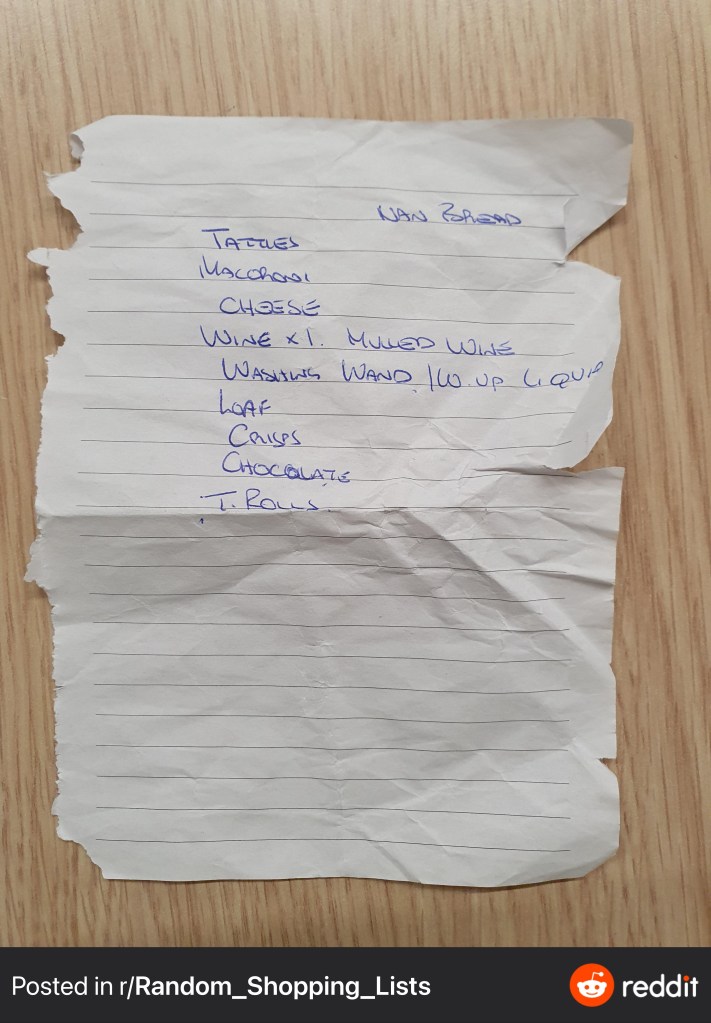 NAN BREAD
TATTIES
MACORONI
CHEESE
WINE x 1. MULLED WINE
WASHING WAND / W. UP LIQUID
LOAF
CRISPS
CHOCOLATE
T. ROLLS.
Posted in r/Random_Shopping_Lists
reddit